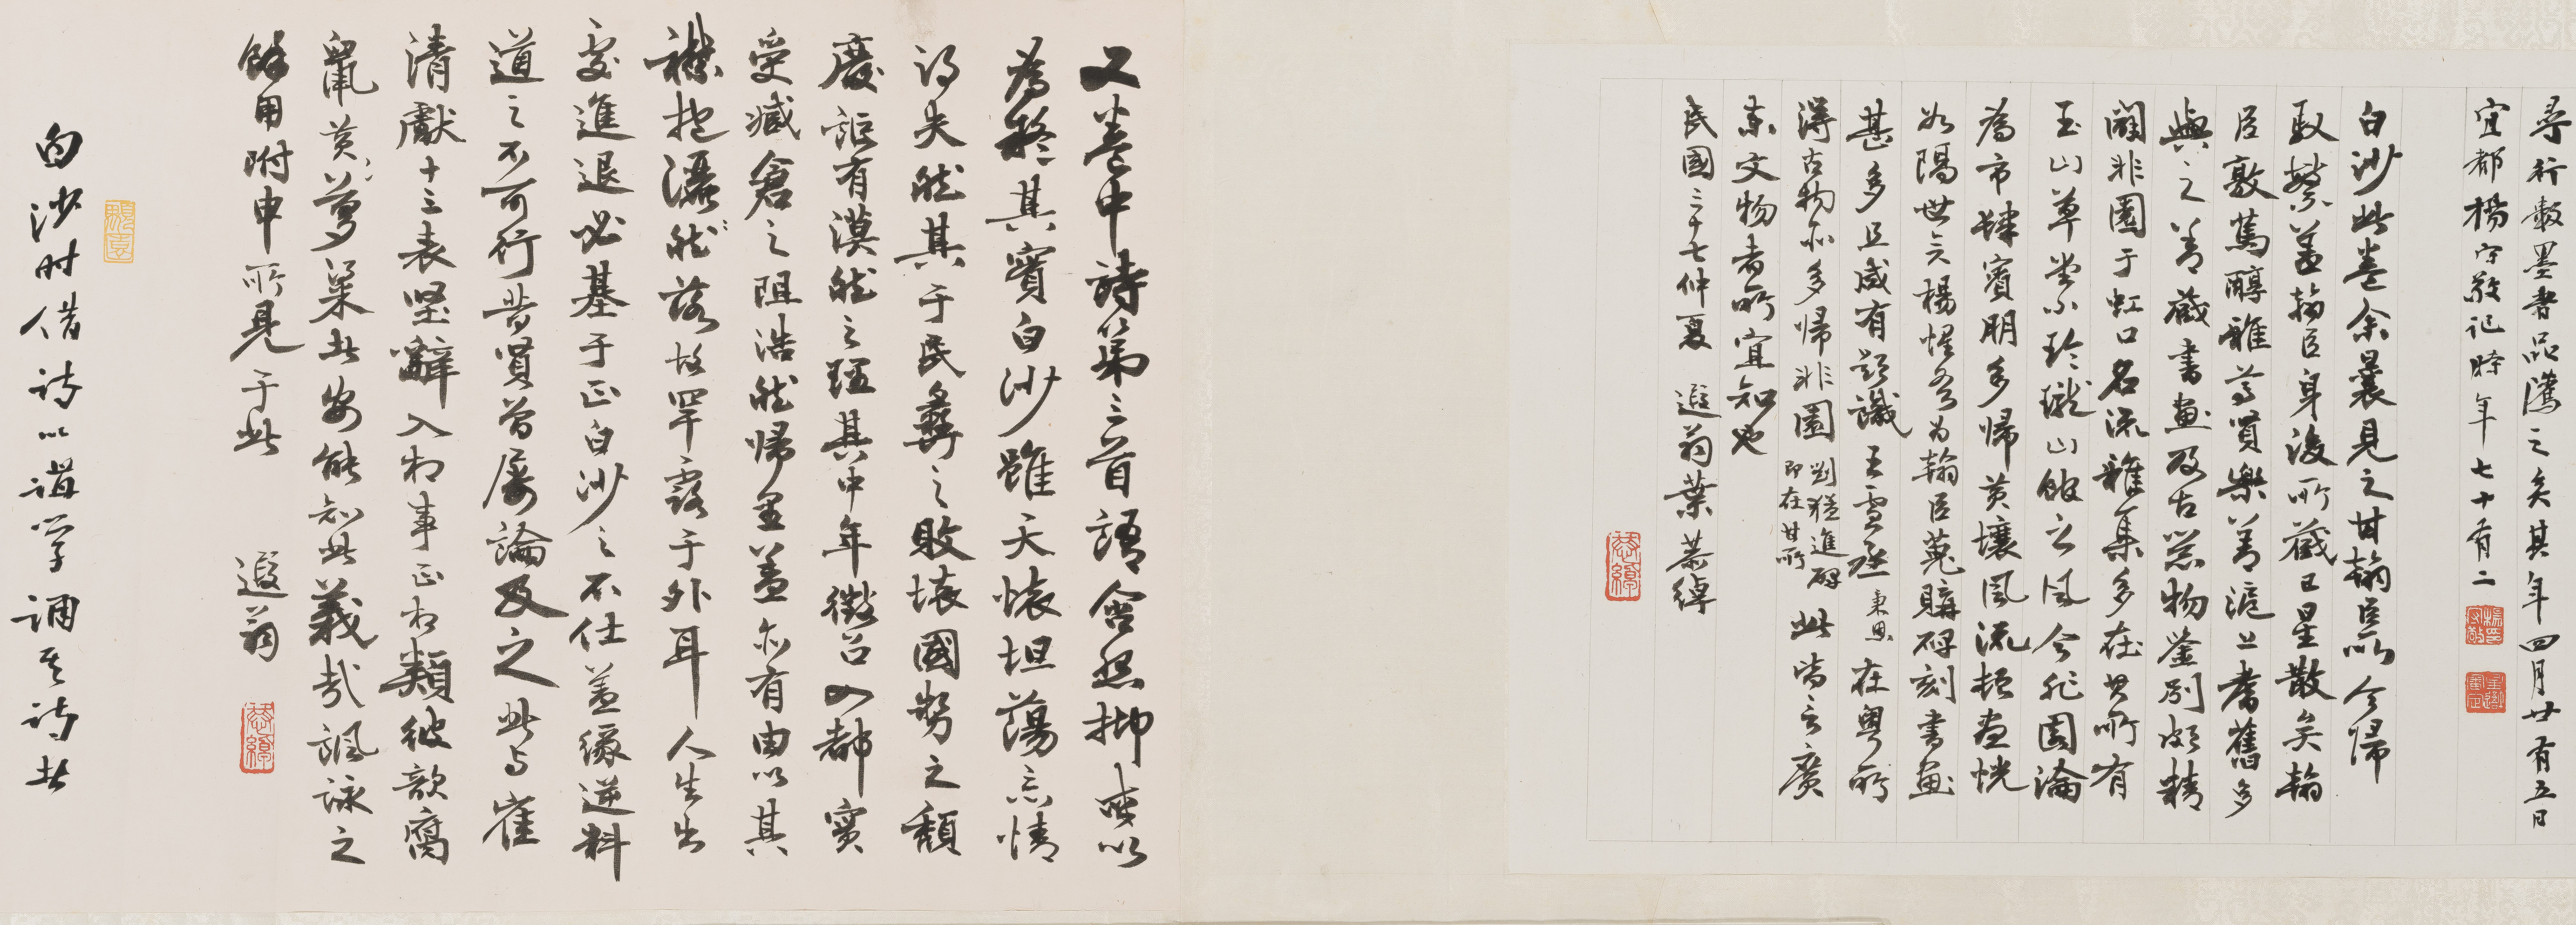 尋行數墨者品騭之矣其年四月廿有五日
宜都楊守敬記時年七十有二
白沙此卷余曩見之甘翰臣所今歸
馭繁蓋翰臣身後所藏已星散矣翰
臣敦篤醇雅尊賢樂善滬上耆舊多
與之善藏書畫及古器物鉴別頗精
闢非園于虹口名流雅集多在其所有
玉山草堂小玲瓏山館之風今非園淪
為市肆賓朋多歸黃壤風流頓盡恍
如隔世亡友楊惺吾為翰臣蒐購碑刻書畫
甚多且咸有題識王雪丞秉恩在粵所
得古物亦多歸非園劉猛進碑即在其所此皆言廣
東文物者所宜知也
民國三十七仲夏 遐翁葉恭綽
又卷中詩第三首語含悲抑或以
為疑其實白沙雖天懷坦蕩忘情
得失然其于民彝之敗壞國勢之頹
廢詎有漠然之理其中年徵召入都實
受臧倉之阻浩然歸里蓋亦有由以其
襟抱灑然落故罕露于外耳人生出
處進退必基于正白沙之不仕蓋緣逆料
道之不可行昔賢曾屢論及之此与崔
清獻十三表堅辭入相事正相類彼歆腐
鼠黃粱夢者安能知此義哉諷詠之
餘用附申所見于此
遐翁
白沙時借詩以講學誦其詩者